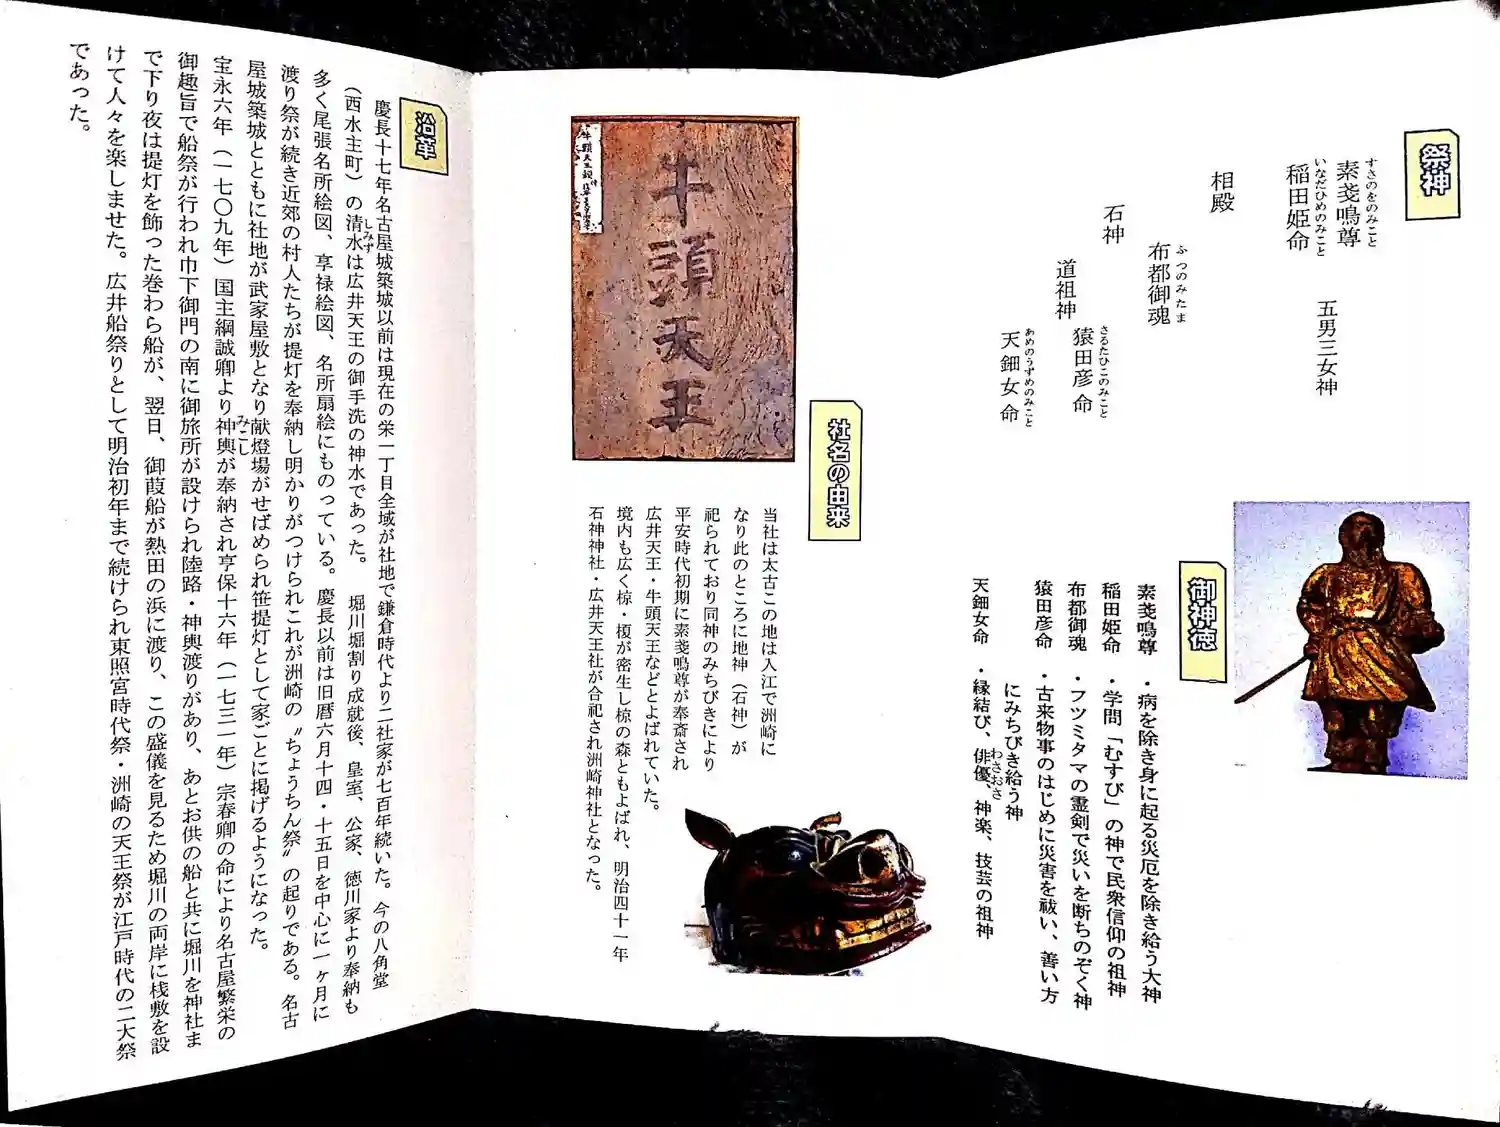 祭神
素戔嗚尊
すさのをのみこと
稲田姫命
いなだひめのみこと
五男三女神
相殿
布都御魂
ふつのみたま
石神
道祖神
猿田彦命
さるたひこのみこと
天鈿女命
あめのうずめのみこと
御神徳
素戔嗚尊・病を除き身に起る災厄を除き給う大神
稲田姫命・学問「むすび」の神で民衆信仰の祖神
布都御魂・フツミタマの霊剣で災いを断ちのぞく神
猿田彦命・古来物事のはじめに災害を祓い、善い方
にみちびき給う神
天鈿女命・縁結び、俳優、神楽、技芸の祖神
わさおさ
牛頭天王
社名の由来
当社は太古この地は入江で洲崎に
なり此のところに地神（石神）が
祀られており同神のみちびきにより
平安時代初期に素戔嗚尊が奉斎され
広井天王・牛頭天王などとよばれていた。
境内も広く椋・榎が密生し椋の森ともよばれ、明治四十一年
石神神社・広井天王社が合祀され洲崎神社となった。
沿革
慶長十七年名古屋城築城以前は現在の栄一丁目全域が社地で鎌倉時代より二社家が七百年続いた。今の八角堂
（西水主町）の清水は広井天王の御手洗の神水であった。　堀川堀割り成就後、皇室、公家、徳川家より奉納も
しみず
多く尾張名所絵図、享禄絵図、名所扇絵にものっている。慶長以前は旧暦六月十四・十五日を中心に一ヶ月に
渡り祭が続き近郊の村人たちが提灯を奉納し明かりがつけられこれが洲崎の〝ちょうちん祭〟の起りである。名古
屋城築城とともに社地が武家屋敷となり献燈場がせばめられ笹提灯として家ごとに掲げるようになった。
宝永六年（一七〇九年）国主綱誠卿より神輿が奉納され亨保十六年（一七三一年）宗春卿の命により名古屋繁栄の
みこし
御趣旨で船祭が行われ巾下御門の南に御旅所が設けられ陸路・神輿渡りがあり、あとお供の船と共に堀川を神社ま
で下り夜は提灯を飾った巻わら船が、翌日、御葭船が熱田の浜に渡り、この盛儀を見るため堀川の両岸に桟敷を設
けて人々を楽しませた。広井船祭りとして明治初年まで続けられ東照宮時代祭・洲崎の天王祭が江戸時代の二大祭
であった。